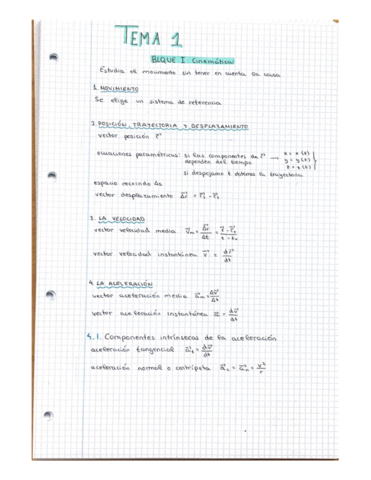 TEMA 1
BLOQUE I Cinemática
Estudia el movimiento sin tener en cuenta la causa
1. MOVIMIENTO
Se elige un sistema de referencia
2. POSICIÓN, TRAYECTORIA Y DESPLAZAMIENTO
vector posición r⃗
ecuaciones paramétricas: si las componentes de r⃗ → x = x(t)
dependen del tiempo y = y(t)
z = z(t)
si despejamos t obtenemos la trayectoria
espacio recorrido Δs
vector desplazamiento Δr⃗ = r⃗₁ - r⃗₀
3. LA VELOCIDAD
vector velocidad media v⃗m = Δr⃗/Δt = r⃗ - r⃗₀/t - t₀
vector velocidad instantánea v⃗ = dr⃗/dt
4. LA ACELERACIÓN
vector aceleración media a⃗m = Δv⃗/Δt
vector aceleración instantánea a⃗ = dv⃗/dt
4.1. Componentes intrínsecas de la aceleración
aceleración tangencial a⃗t = dv/dt
aceleración normal o centrípeta a⃗c = a⃗n = v²/r